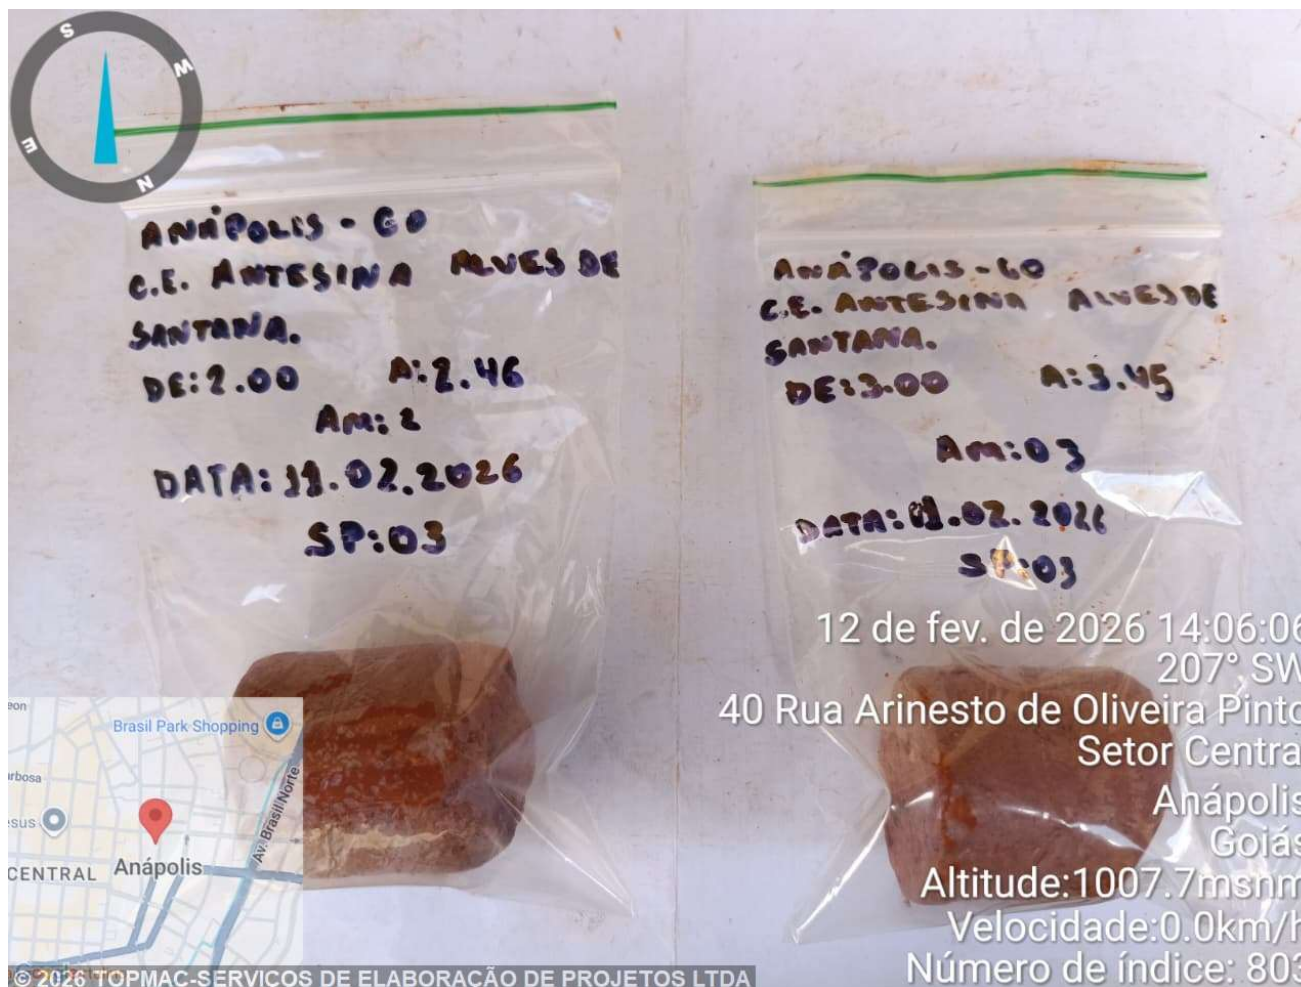 S
W
E
N
ANÁPOLIS - GO
C.E. ANTESINA ALVES DE
SANTANA.
DE: 2.00 A: 2.46
Am: 2
DATA: 11.02.2026
SP: 03
ANÁPOLIS - GO
C.E. ANTESINA ALVES DE
SANTANA.
DE: 3.00 A: 3.45
Am: 03
DATA: 11.02.2026
SP: 03
12 de fev. de 2026 14:06:06
207° SW
40 Rua Arinesto de Oliveira Pinto
Setor Central
Anápolis
Goiás
Altitude:1007.7msnm
Velocidade:0.0km/h
Número de índice: 803
eon
Brasil Park Shopping
arbosa
esus
Av. Brasil Norte
CENTRAL
Anápolis
© 2026 TOPMAC-SERVICOS DE ELABORAÇÃO DE PROJETOS LTDA